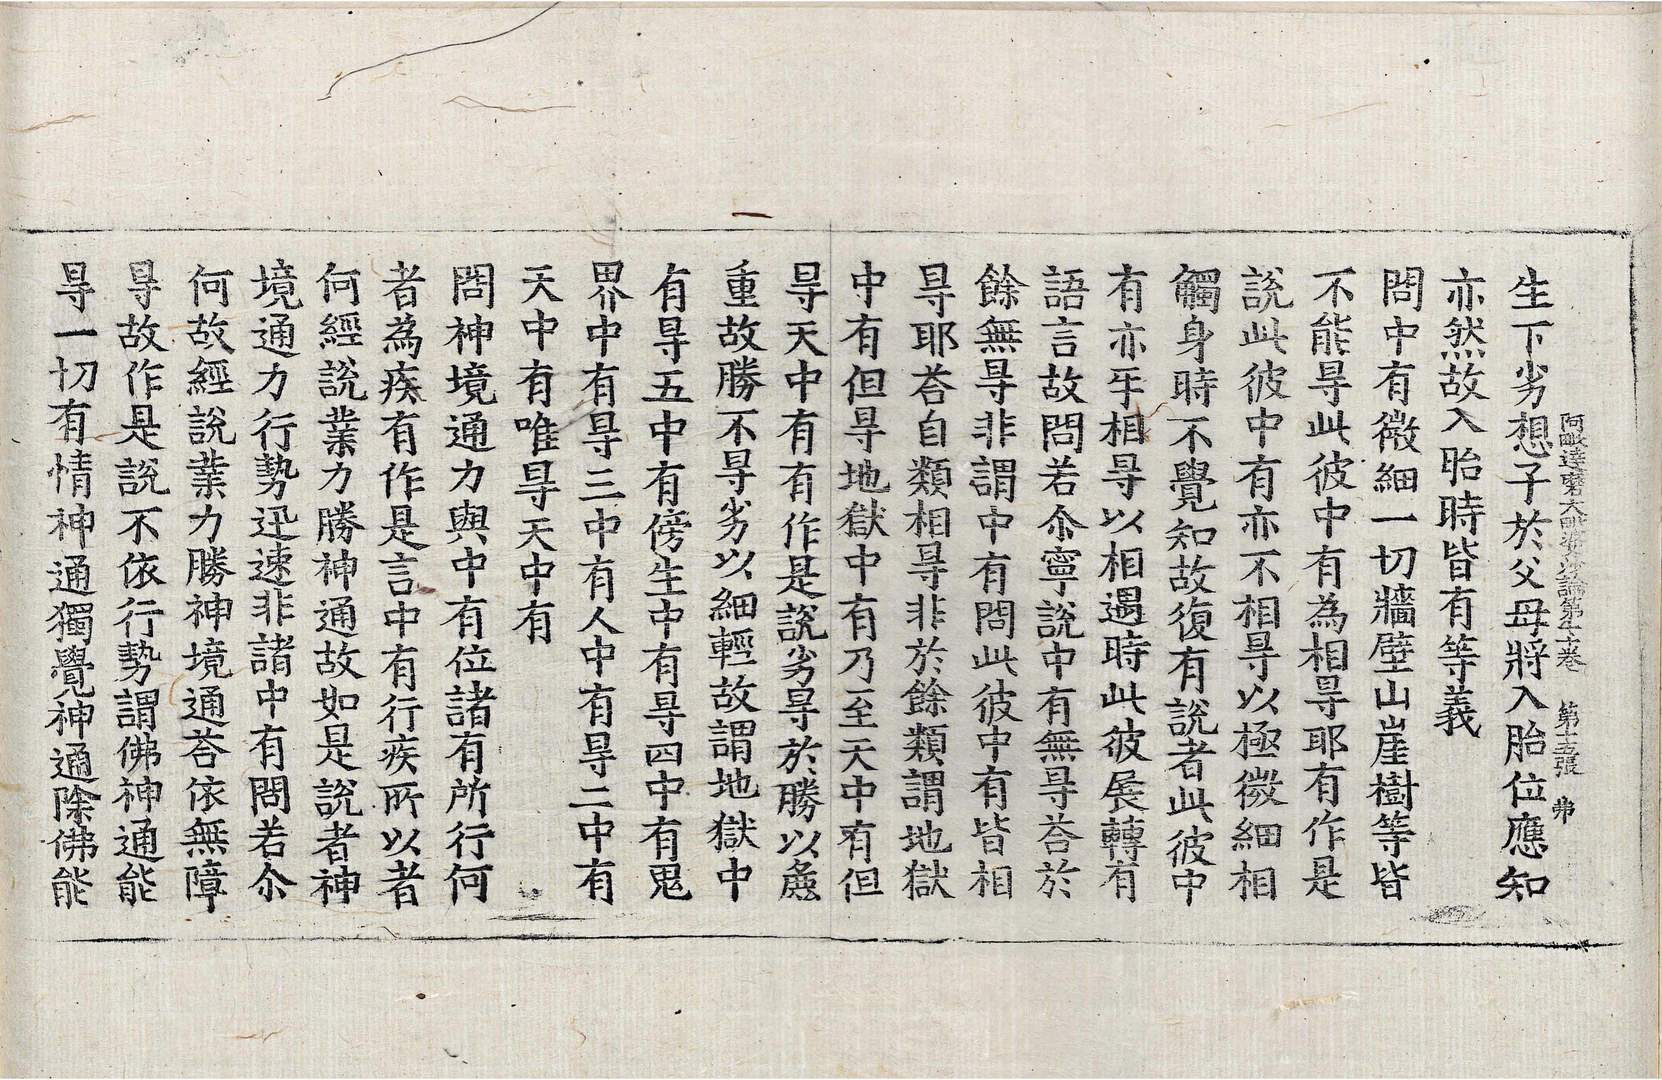 阿毗達磨大毗婆沙論第七十卷　第十五張　弗
生下劣想子於父母將入胎位應知
亦然故入胎時皆有等義
問中有微細一切牆壁山崖樹等皆
不能㝵此彼中有為相㝵耶有作是
說此彼中有亦不相㝵以極微細相
觸身時不覺知故復有說者此彼中
有亦㸦相㝵以相遇時此彼展轉有
語言故問若尒寧說中有無㝵荅於
餘無㝵非謂中有問此彼中有皆相
㝵耶荅自類相㝵非於餘類謂地獄
中有但㝵地獄中有乃至天中有但
㝵天中有有作是說劣㝵於勝以麁
重故勝不㝵劣以細輕故謂地獄中
有㝵五中有傍生中有㝵四中有鬼
界中有㝵三中有人中有㝵二中有
天中有唯㝵天中有
問神境通力與中有位諸有所行何
者為疾有作是言中有行疾所以者
何經說業力勝神通故如是說者神
境通力行勢迅速非諸中有問若尒
何故經說業力勝神境通荅依無障
㝵故作是說不依行勢謂佛神通能
㝵一切有情神通獨覺神通除佛能